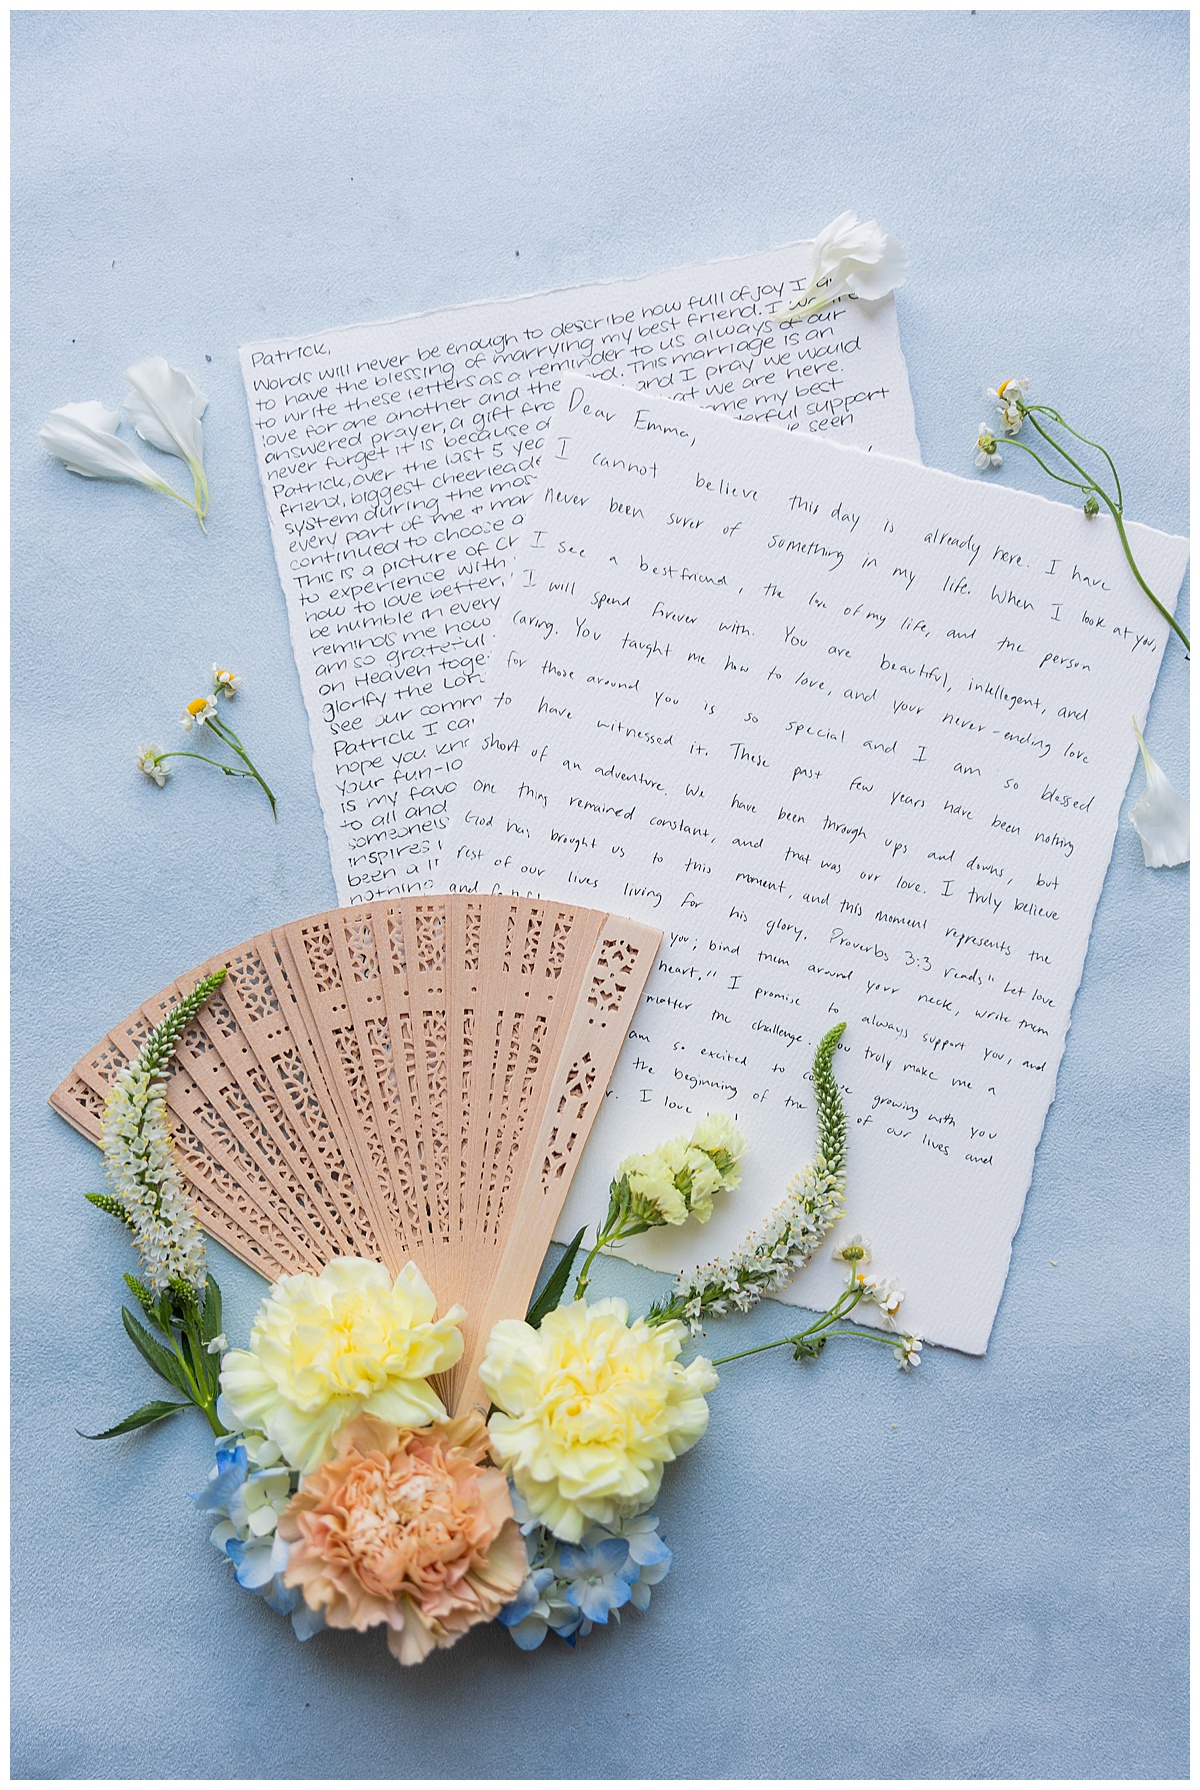 Patrick,
Words will never be enough to describe how full of joy I a
to have the blessing of marrying my best friend. I
to write these letters as a reminder to us always of our
love for one another and the ord. This marriage is an
answered prayer, a gift fro and I pray we would
never forget it is because o at we are here.
Patrick, over the last 5 yea me my best
friend, biggest cheerleade derful support
system during the mos e seen
every part of me + mar
continued to choose a
This is a picture of Ch
to experience with
how to love better,
be humble in every
reminds me how
am so grateful
on Heaven toge
glorify the Lor
see our comm
Patrick I ca
hope you kn
your fun-lo
is my favo
to all and
someone's
inspires
been a
nothing
Dear Emma,
I cannot believe this day is already here. I have
never been surer of something in my life. When I look at you,
I see a bestfriend, the love of my life, and the person
I will spend forever with. You are beautiful, intellegent, and
caring. You taught me how to love, and your never-ending love
for those around you is so special and I am so blessed
to have witnessed it. These past few years have been nothing
short of an adventure. We have been through ups and downs, but
one thing remained constant, and that was our love. I truly believe
God has brought us to this moment, and this moment represents the
rest of our lives living for his glory. Proverbs 3:3 reads "Let love
and you; bind them around your neck, write them
heart." I promise to always support you, and
matter the challenge. You truly make me a
am so excited to growing with you
the beginning of the of our lives and
r. I love